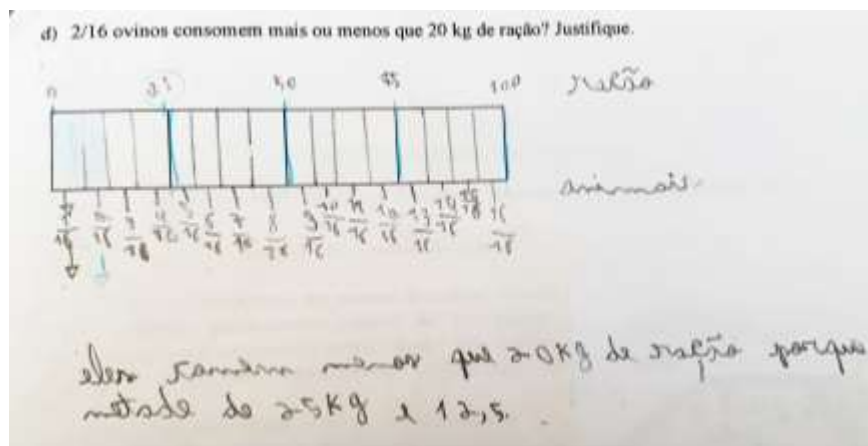 d) 2/16 ovinos consomem mais ou menos que 20 kg de ração? Justifique.
0 25 50 75 100 ração
animais
1/16 2/16 3/16 4/16 5/16 6/16 7/16 8/16 9/16 10/16 11/16 12/16 13/16 14/16 15/16 16/16
eles comem menos que 20Kg de ração porque
metade de 25Kg é 12,5.